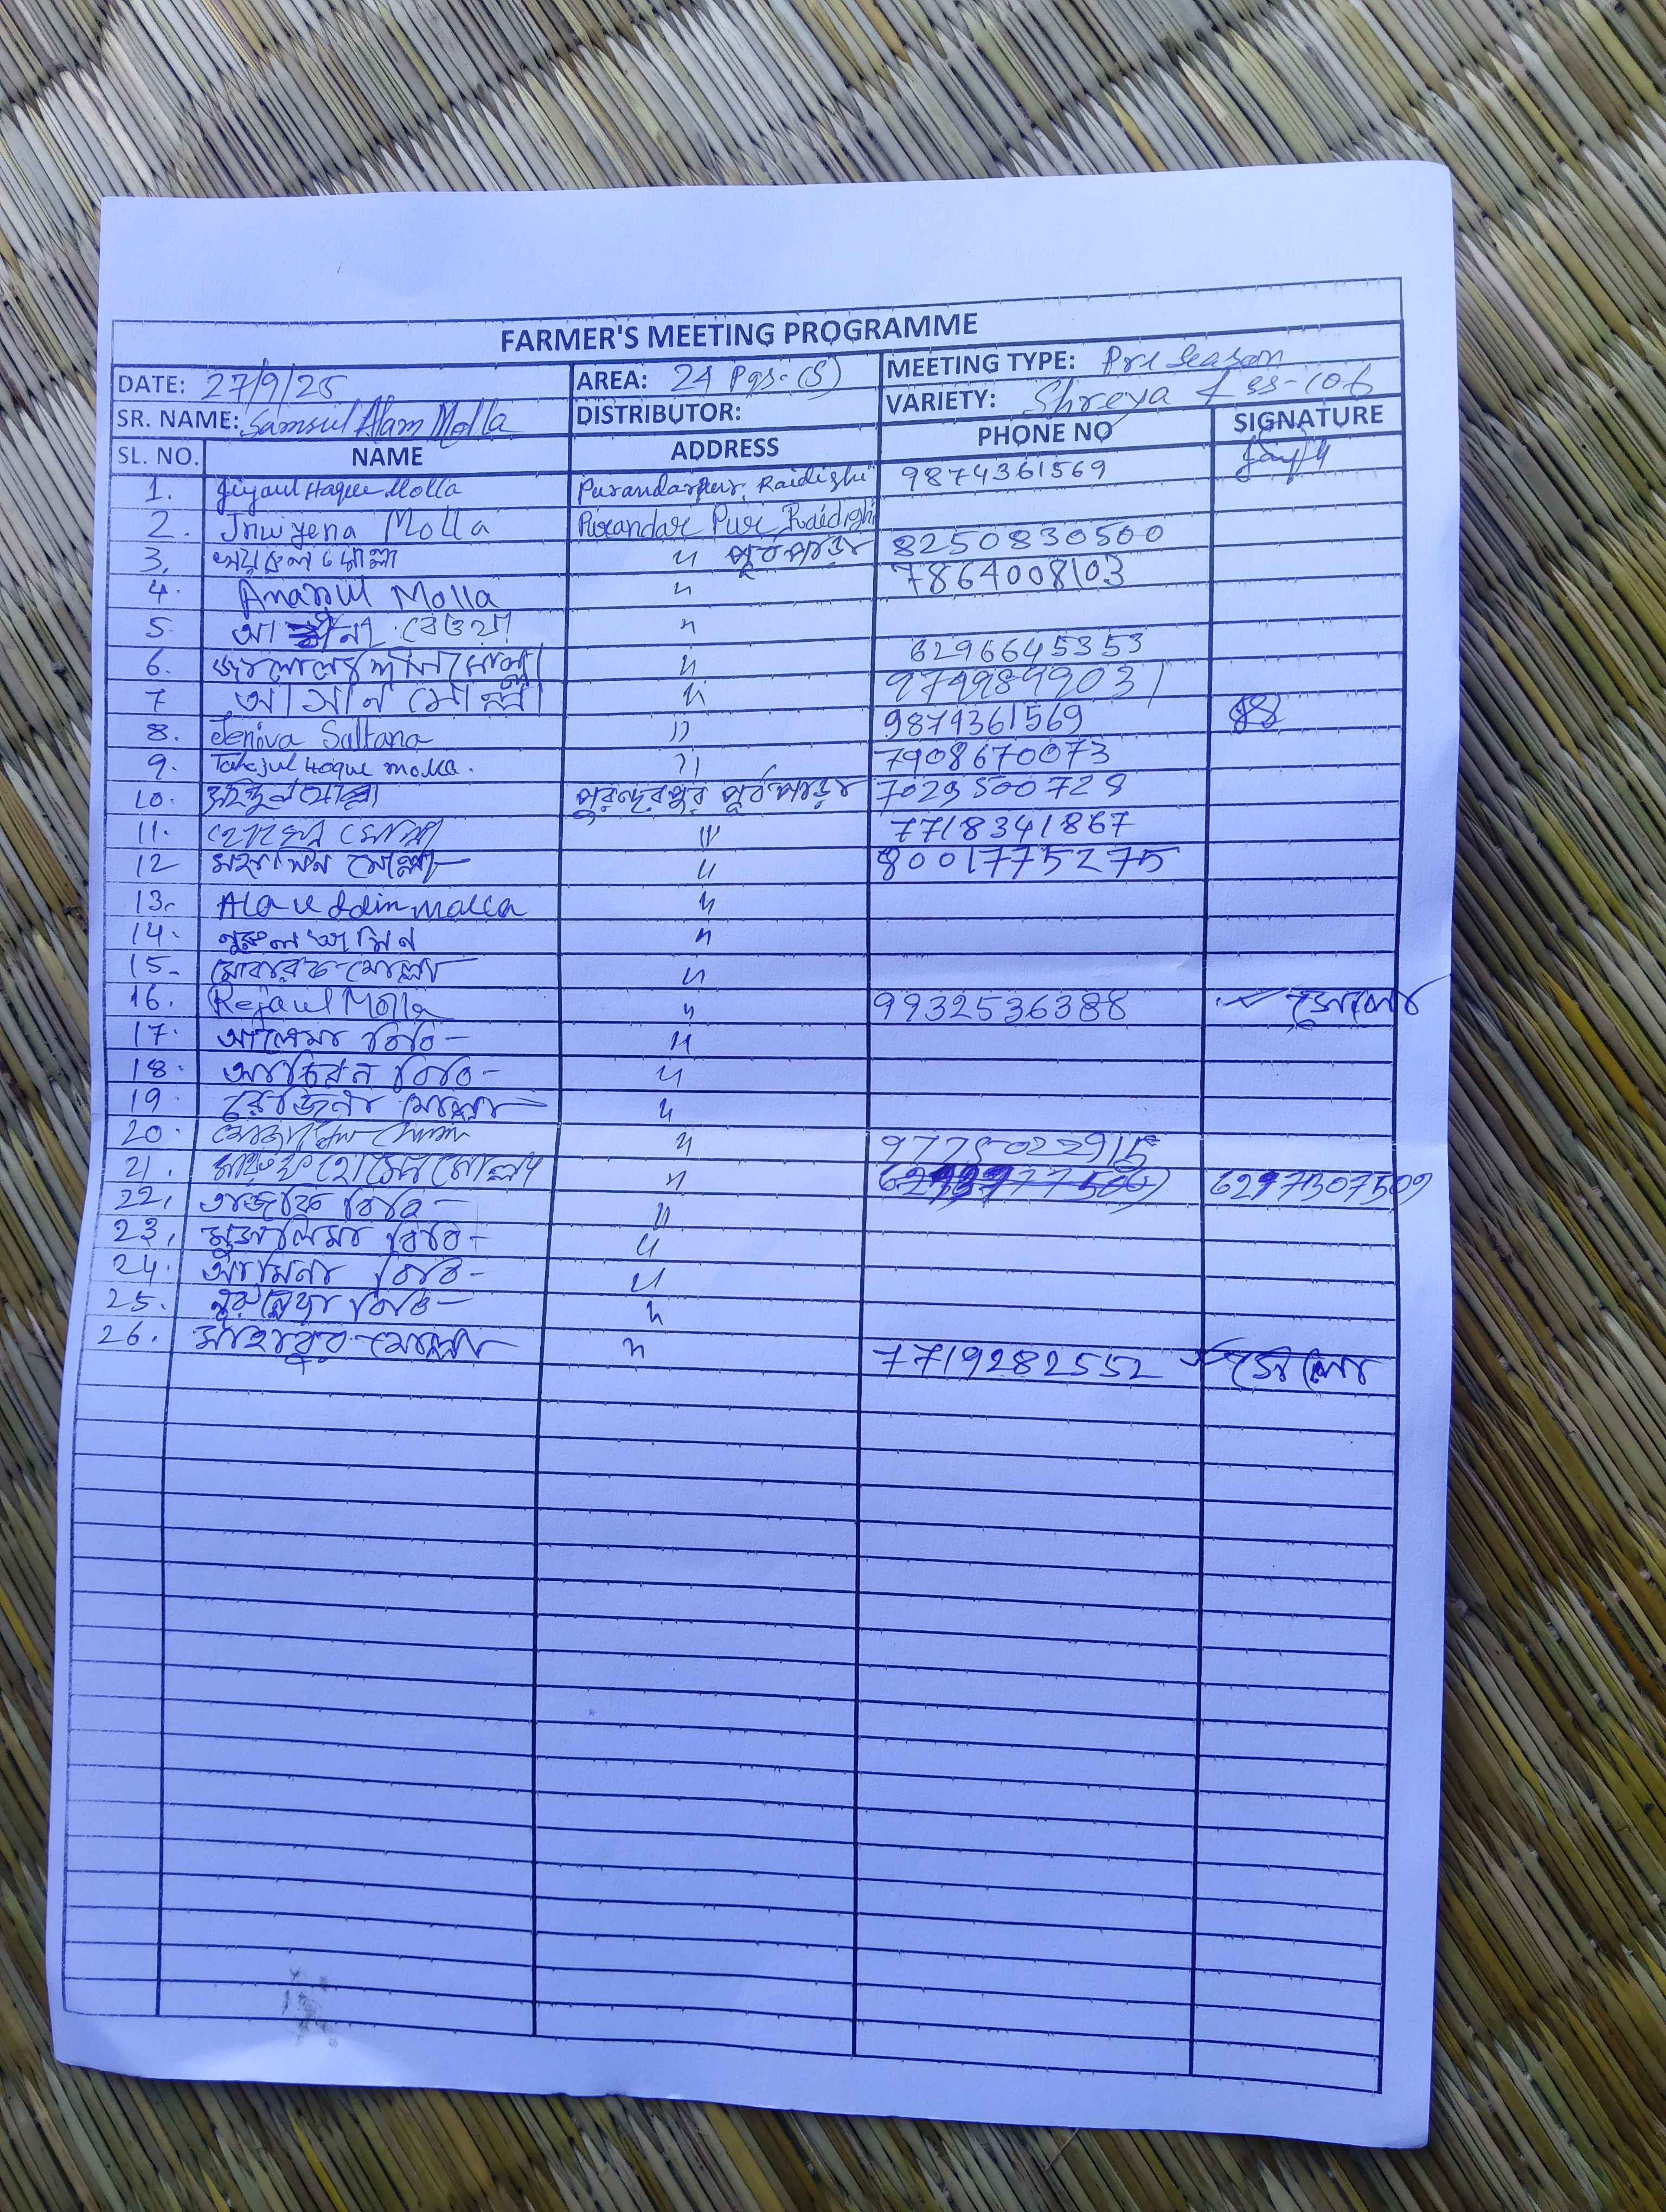 FARMER'S MEETING PROGRAMME
DATE: 27/9/25 AREA: 24 Pgs-(S) MEETING TYPE: Pre Season
SR. NAME: Samsul Alam Molla DISTRIBUTOR: VARIETY: Shreya & SS-106
SL. NO. NAME ADDRESS PHONE NO SIGNATURE
1. Jiyaul Haque Molla Purandarpur, Raidighi 9874361569
2. Molla Purandar Pur Raidighi
3. মোল্লা " পূর্বপাড়া 8250830500
4. Anarul Molla " 7864008103
5. বেওয়া "
6. জালালউদ্দীন মোল্লা " 6296645353
7 আসান মোল্লা " 9749899031
8. Jeniva Sultana " 9874361569
9. Tahajul Hoque Molla. " 7908670073
10. পুরন্দরপুর পূর্বপাড়া 7029500728
11. মোল্লা " 7718341867
12 মহাসিন মোল্লা " 8001775275
13. Alauddin Molla "
14. নুরুল আমিন "
15. মোবারক মোল্লা "
16. Rejaul Molla " 9932536388
17. আলেমা বিবি "
18. বিবি "
19. রোজিনা মোল্লা "
20. "
21. মারুফ হোসেন মোল্লা " 6297307509
22. বিবি "
23. মুসলিমা বিবি "
24. আমিনা বিবি "
25. বিবি "
26. মাহাবুর মোল্লা " 7719282552